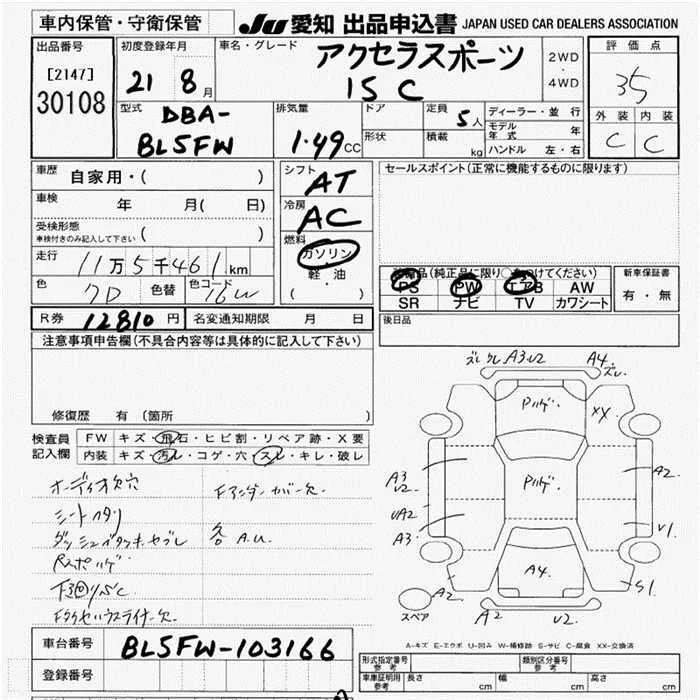 車内保管・守衛保管
JU 愛知 出品申込書 JAPAN USED CAR DEALERS ASSOCIATION
出品番号
[2147]
30108
初度登録年月
21 8月
車名・グレード
アクセラスポーツ
15C
2WD
・
4WD
評価点
35
外装 内装
C C
型式
DBA-
BL5FW
排気量
1.49 CC
ドア
形状
定員
5人
積載
kg
ディーラー・並行
モデル年式 年
ハンドル 左・右
車歴 自家用・( )
車検 年 月( 日)
受検形態
車検付きのみ記入して下さい ( )
走行 11万5千461km
色 色替 色コード 16W
シフト
AT
冷房
AC
燃料
ガソリン
軽油
( ・ )
セールスポイント(正常に機能するものに限ります)
(純正品に限り○をつけてください)
PS PW エアB AW
SR ナビ TV カワシート
新車保証書
有・無
R券 12810円 名変通知期限 月 日
後日品
注意事項申告欄(不具合内容等は具体的に記入して下さい)
修復歴 有(箇所 )
検査員記入欄
FW キズ・飛石・ヒビ割・リペア跡・X要
内装 キズ・汚レ・コゲ・穴・スレ・キレ・破レ
オーディオ欠穴
Fアンダーカバー欠
シートヘタリ
各A.U.
下回りSC
ズレ A3 U2 A4 ズレ
XX
A3
U2
A2
UA2
A3
U1
A4
S1
A2
スペア
A2 U2
A-キズ E-エクボ U-凹み W-補修跡 S-サビ C-腐食 XX-交換済
車台番号 BL5FW-103166
登録番号
形式指定番号 参考
類別区分番号 参考
車庫証明用 参考 長さ cm 幅 cm 高さ cm